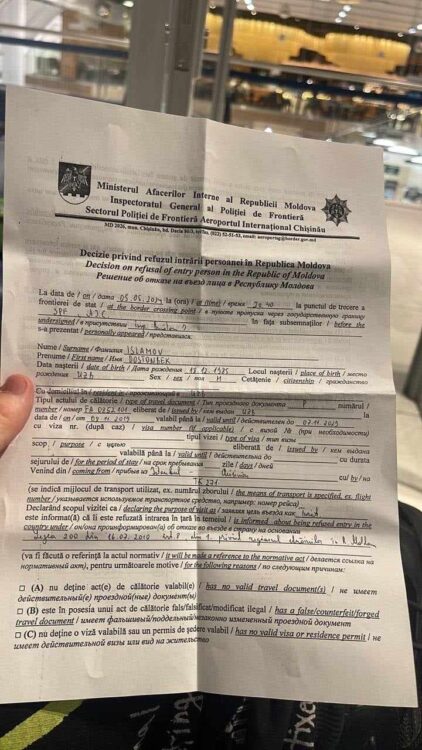 Ministerul Afacerilor Interne al Republicii Moldova
Inspectoratul General al Poliției de Frontieră
Sectorul Poliției de Frontieră Aeroportul Internațional Chișinău
MD 2026, mun. Chișinău, bd. Dacia 80/3, tel/fax.
Decizie privind refuzul intrării persoanei în Republica Moldova
Decision on refusal of entry person in the Republic of Moldova
Решение об отказе на въезд лица в Республику Молдова
La data de / on / дата 05.05.2024 la (ora) / at (time) / время la punctul de trecere a
frontierei de stat / at the border crossing point / в пункте пропуска через государственную границу
în fața subsemnaților / before the
undersigned / в присутствии
s-a prezentat / personally appeared / представился:
Nume / Surname / Фамилия ISLAMOV
Prenume / First name / Имя DOSTONBEK
Data nașterii / date of birth / Дата рождения Locul nașterii / place of birth / место
рождения UZB Sex / sex / пол M Cetățenie / citizenship / гражданство
Cu domiciliul în / resident in / проживающий в UZB
Tipul actului de călătorie / type of travel document / Тип проездного документа P numărul /
number / номер eliberat de / issued by / кем выдан UZB la
data de / on / от valabil până la / valid until / действителен до
cu viza nr. (după caz) / visa number (if applicable) / с визой № (при необходимости)
tipul vizei / type of visa / тип визы eliberată de / issued by / кем выдана
scop / purpose / с целью valabilă până la / valid until / действительна до cu durata
sejurului de / for the period of stay / на срок пребывания zile / days / дней
Venind din / coming from / прибыв из cu / by / на
(se indică mijlocul de transport utilizat, ex. numărul zborului / the means of transport is specified, ex. flight
number / указывается используемое транспортное средство, например, номер рейса)
Declarând scopul vizitei ca / declaring the purpose of visit as / заявляя цель въезда как
este informat(ă) că îi este refuzată intrarea în țară în temeiul / is informed about being refused entry in the
country under / он/она проинформирован(а) об отказе во въезде в страну на основании
Legea 200 din
(va fi făcută o referință la actul normativ / it will be made a reference to the normative act / делается ссылка на
нормативный акт), pentru următoarele motive / for the following reasons / по следующим причинам:
□ (A) nu deține act(e) de călătorie valabil(e) / has no valid travel document(s) / не имеет
действительный(е) проездной(ные) документ(ы)
□ (B) este în posesia unui act de călătorie fals/falsificat/modificat ilegal / has a false/counterfeit/forged
travel document / имеет фальшивый/поддельный/незаконно измененный проездной документ
□ (C) nu deține o viză valabilă sau un permis de ședere valabil / has no valid visa or residence permit / не
имеет действительной визы или вид на жительство